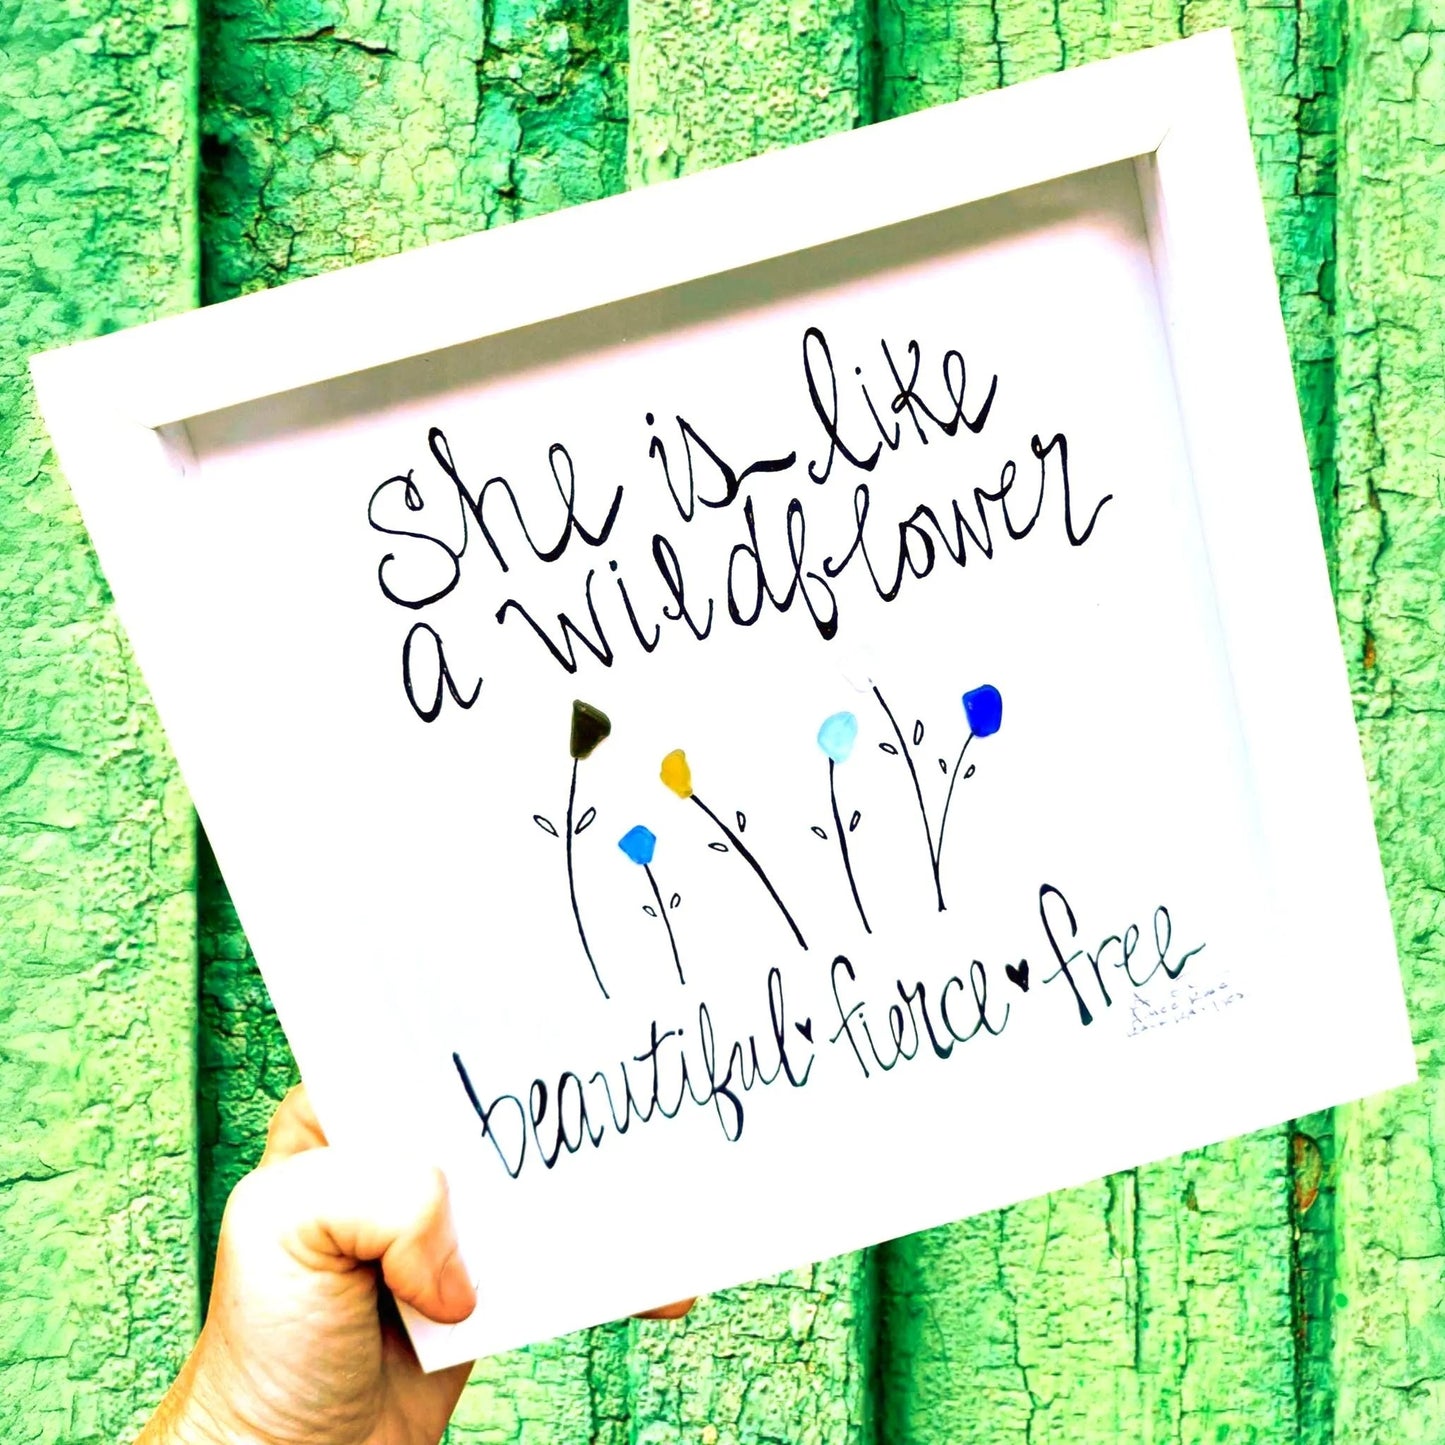 She is like
a wildflower
beautiful ♥ fierce ♥ free